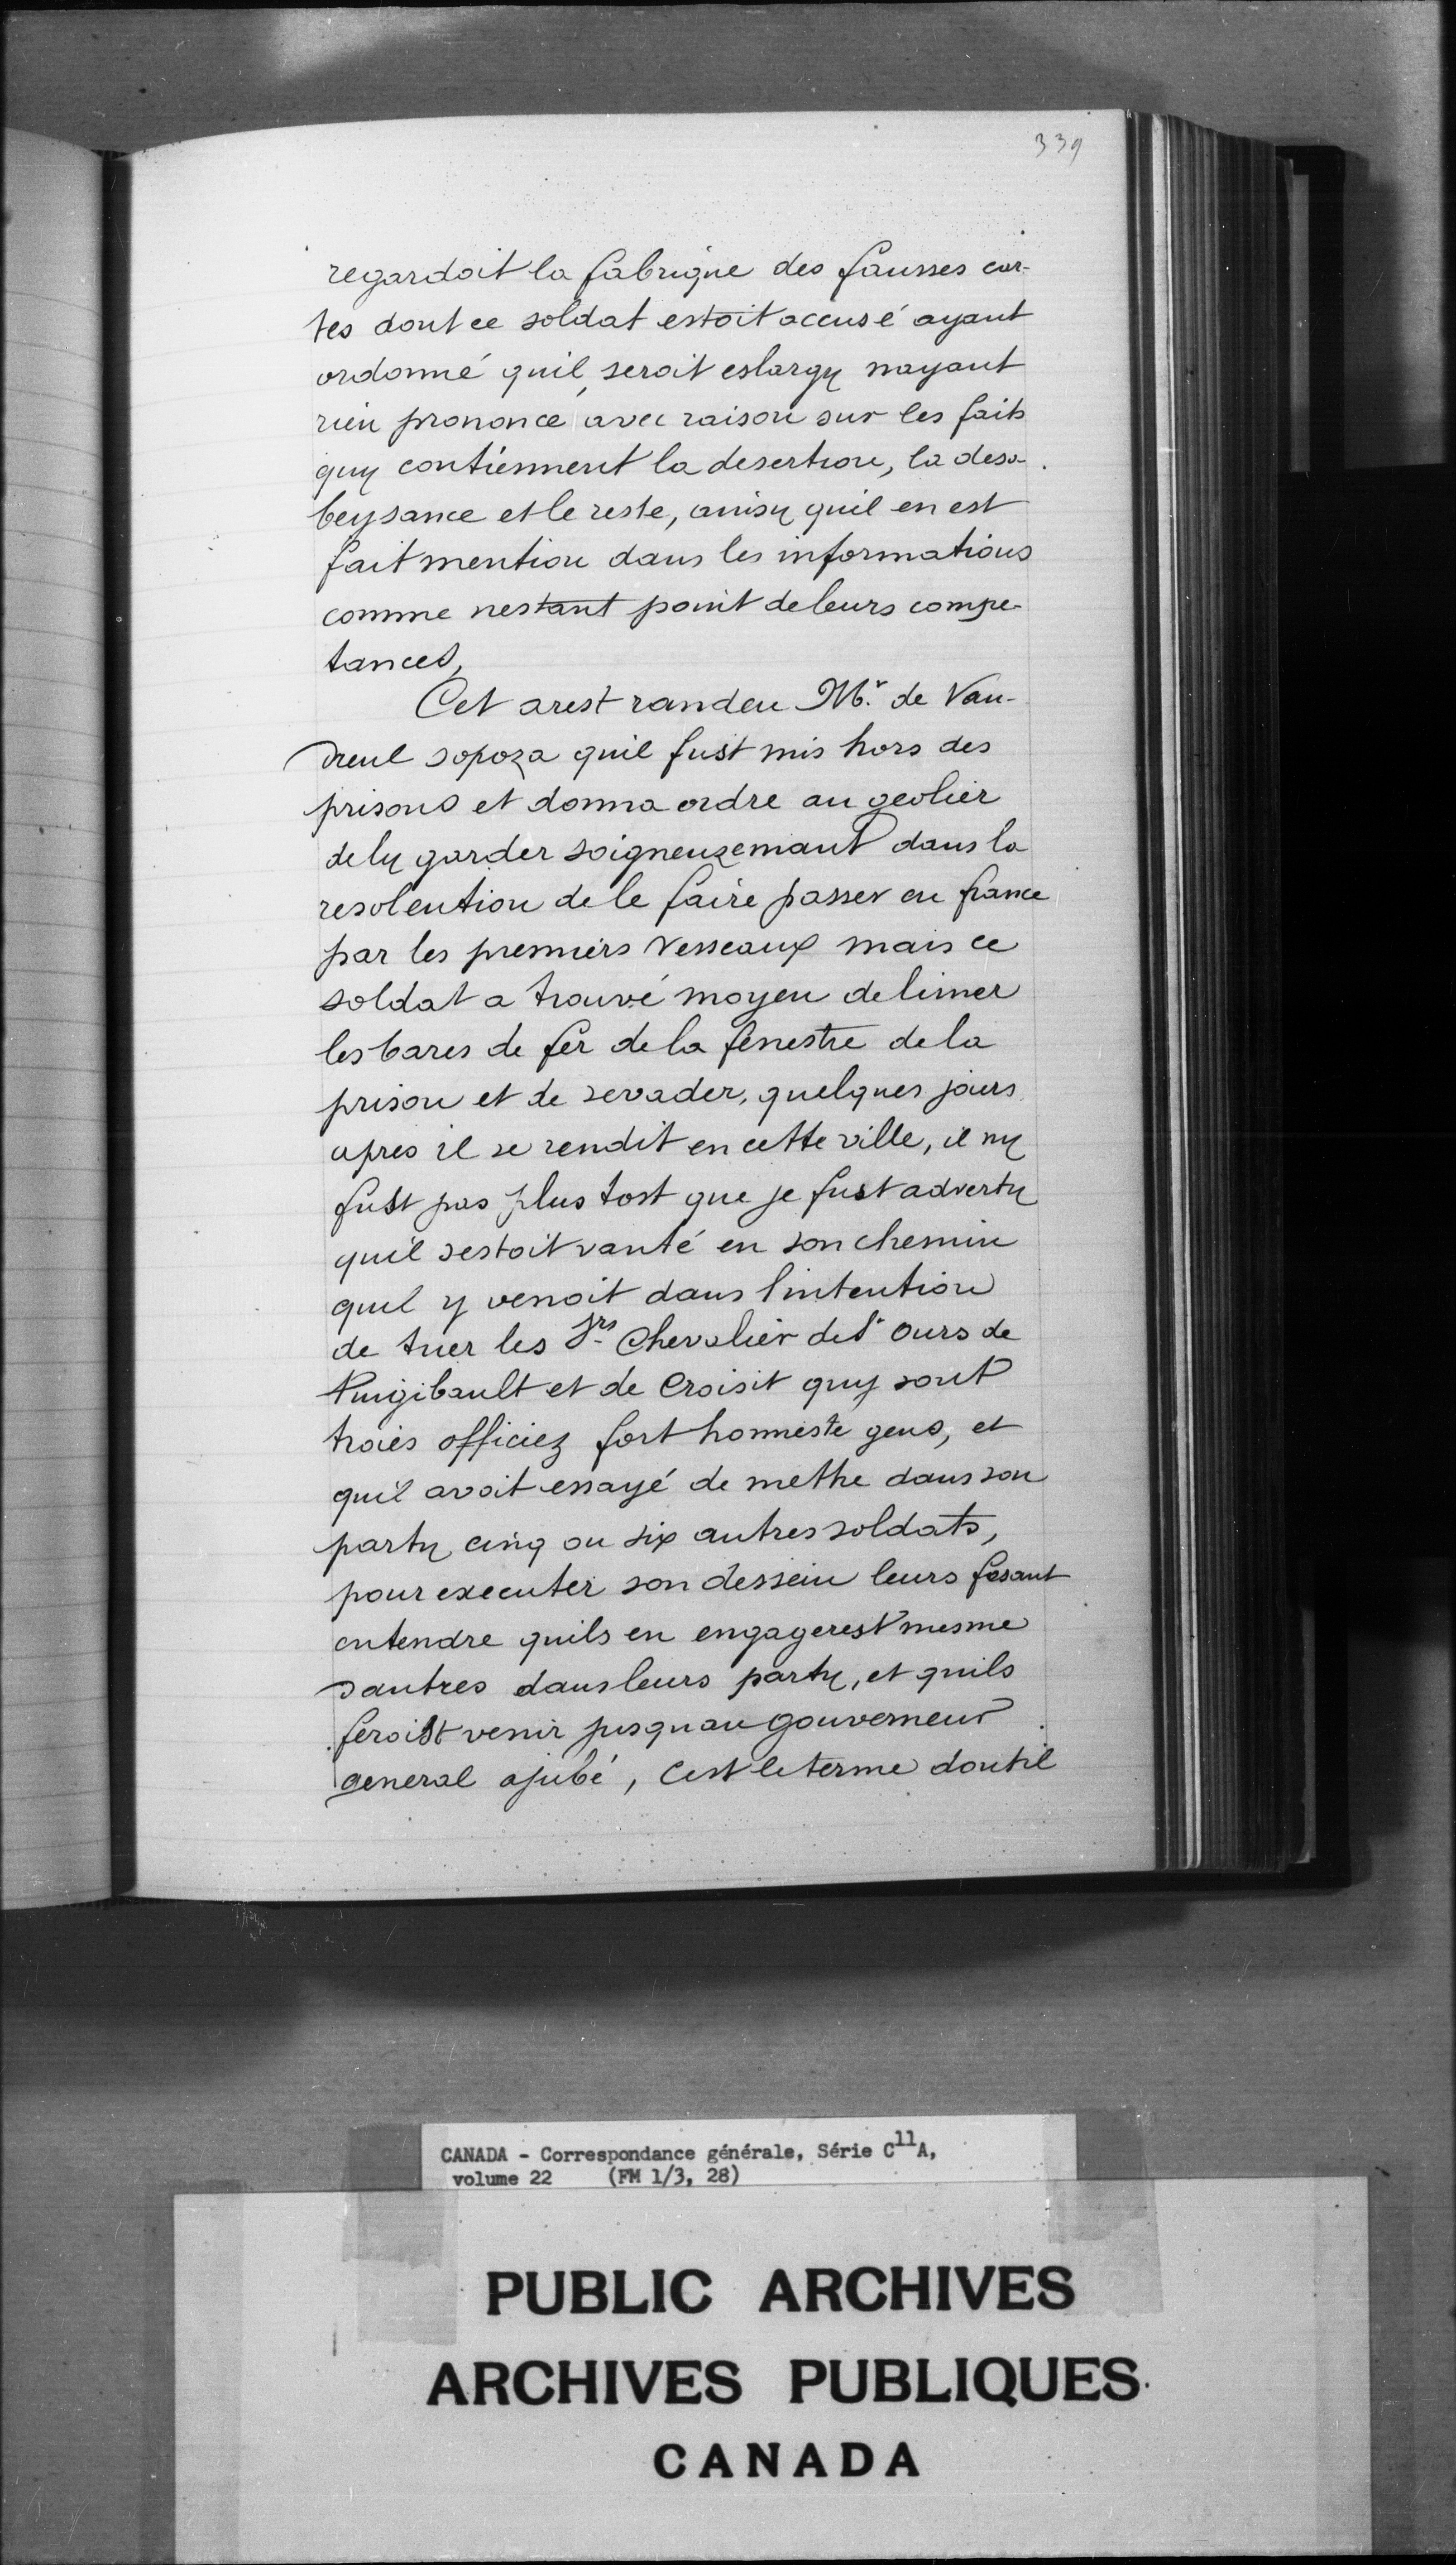 339
regardoit la fabrique des fausses car-
tes dont ce soldat estoit accusé ayant
ordonné quil seroit eslargy nayant
rien prononcé avec raison sur les faits
quy contiennent la desertion, la deso-
beysance et le reste, ainsy quil en est
fait mention dans les informations
comme nestant point de leurs compe-
tances,
Cet arest randeu Mr. de Vau-
dreul sopoza quil fust mis hors des
prisons et donna ordre au geolier
de ly garder soigneuzemant dans la
resoleution de le faire passer en france
par les premiers vesseaux mais ce
soldat a trouvé moyen de limer
les bares de fer de la fenestre de la
prison et de sevader, quelques jours
apres il se rendit en cette ville, il ny
fust pas plus tost que je fust adverty
quil sestoit vanté en son chemin
quil y venoit dans lintention
de tuer les Srs Chevalier de St Ours de
Puigibault et de Croisit quy sont
trois officiez fort honneste gens, et
quil avoit essayé de mettre dans son
party cinq ou six autres soldats,
pour executer son dessein leurs fesant
entendre quils en engagerest mesme
dautres dans leurs party, et quils
feroist venir jusquau gouverneur
general ajubé, Cest le terme dont il
CANADA - Correspondance générale, Série C11A,
volume 22 (FM 1/3, 28)
PUBLIC ARCHIVES
ARCHIVES PUBLIQUES
CANADA